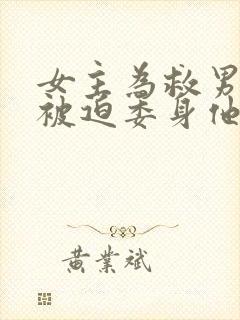 女主為救男
被迫委身他
黃業斌